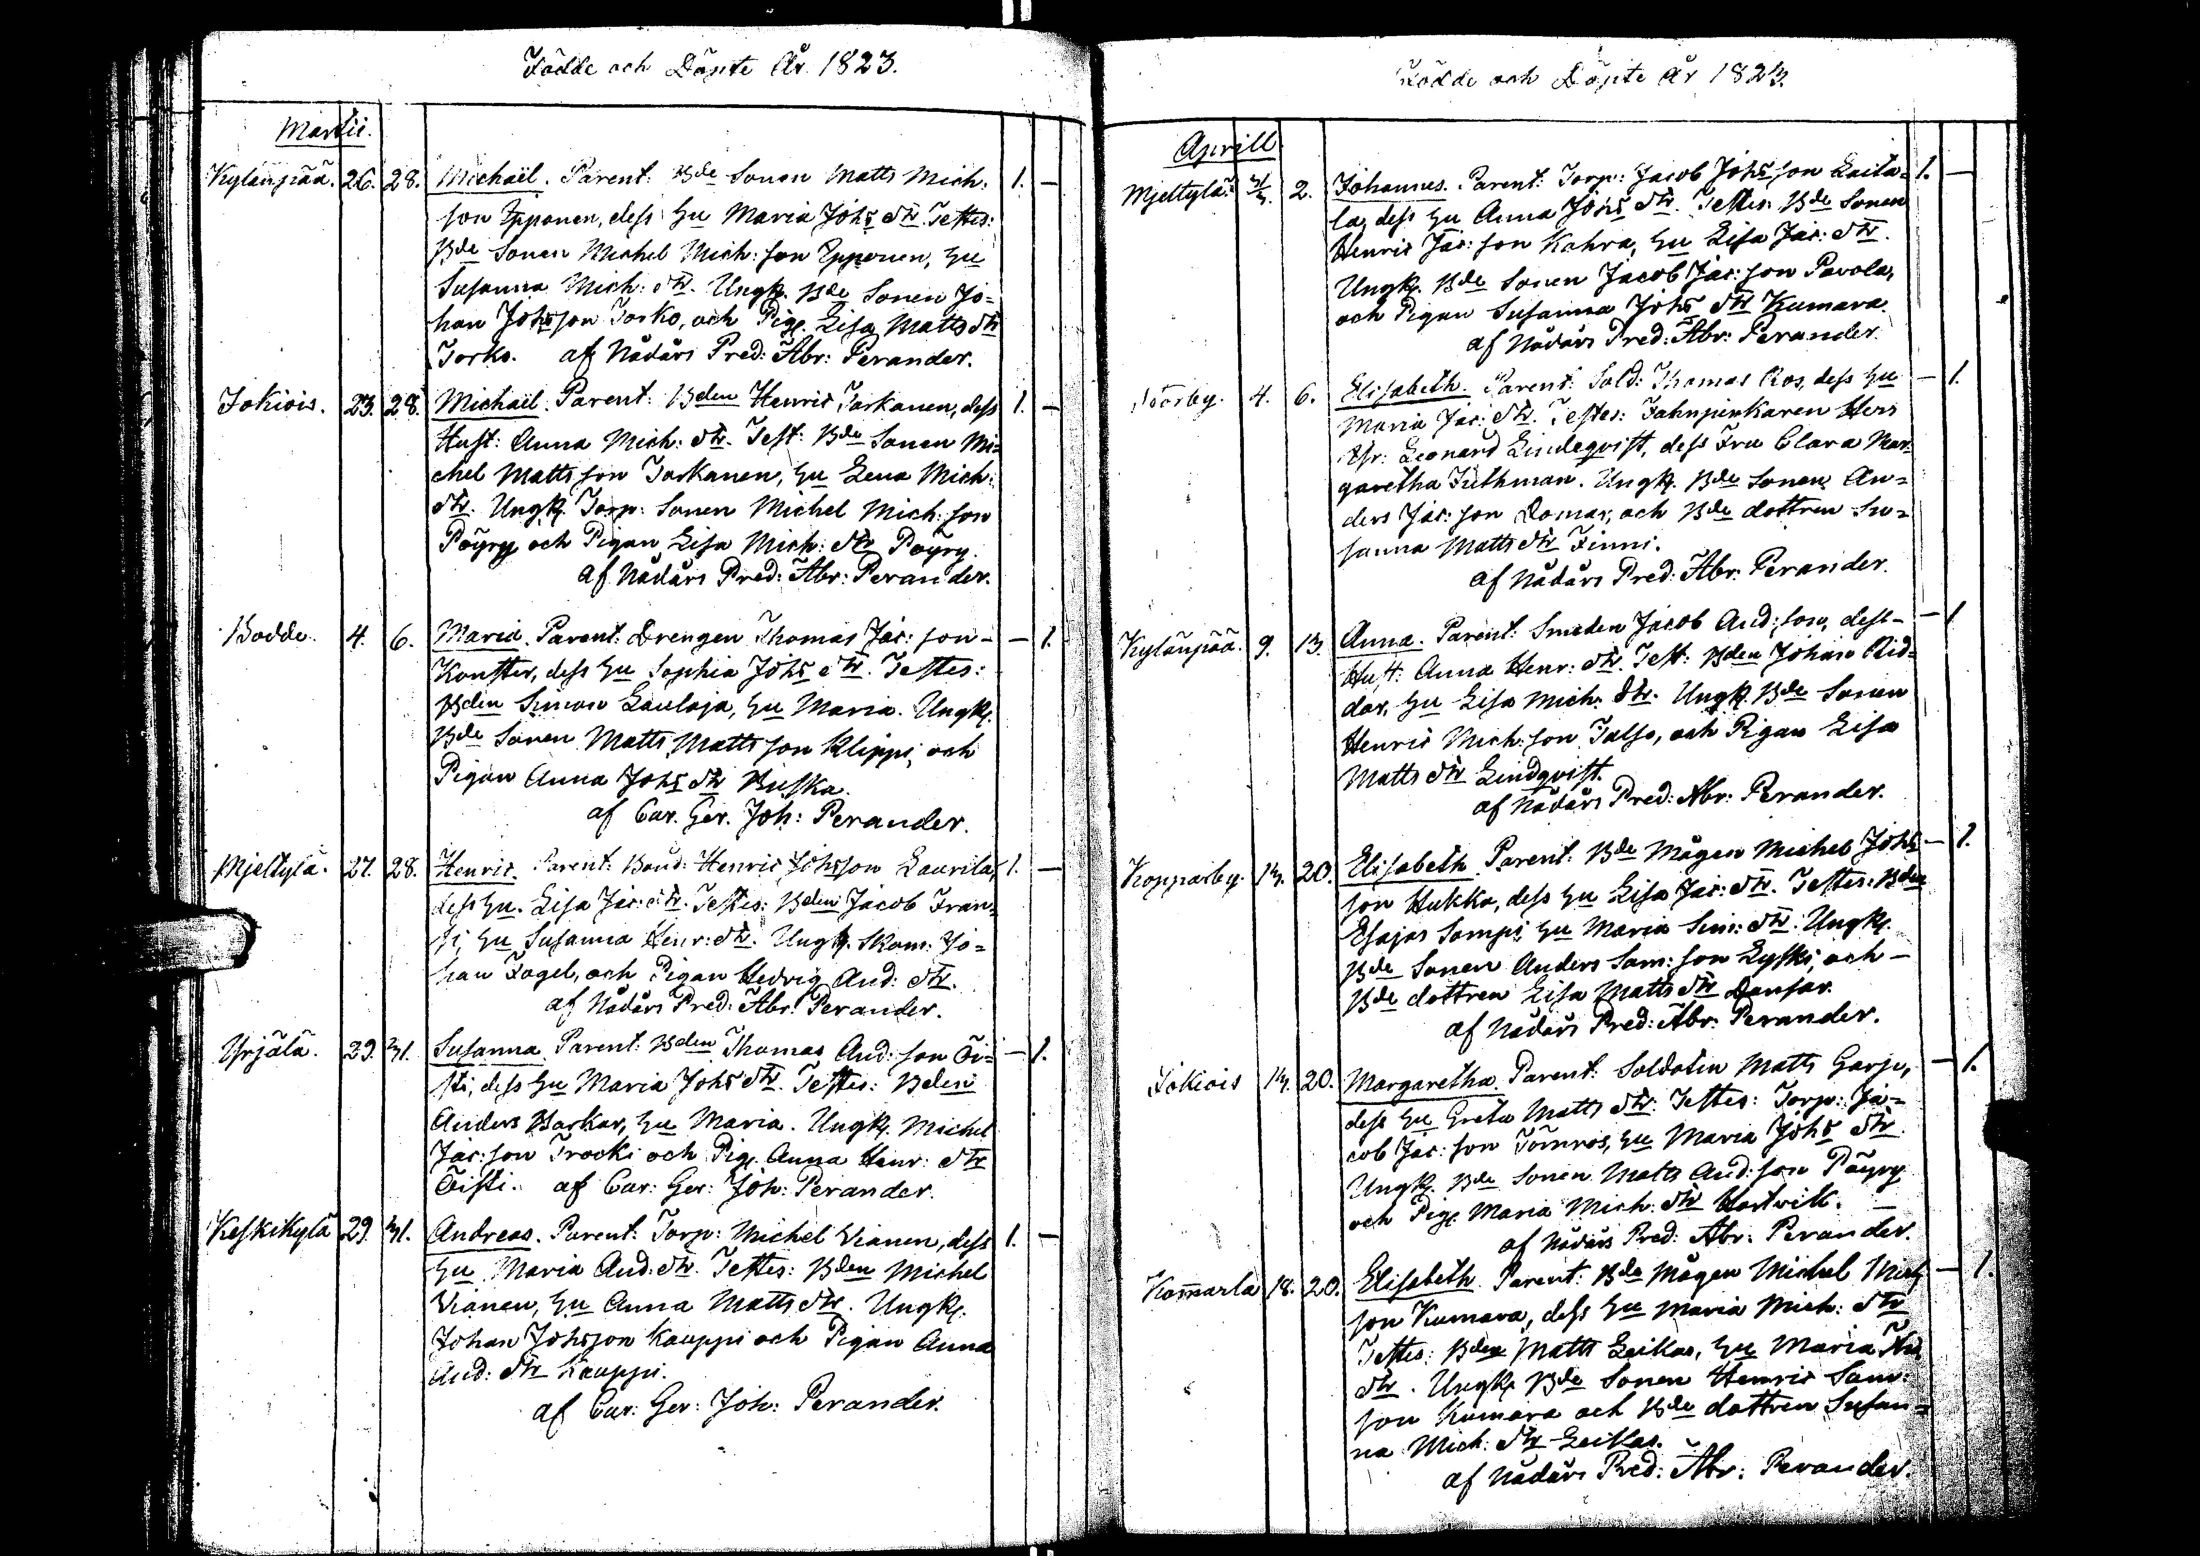 Födde och Döpte År 1823.
Martii.
Kylänpää. 26. 28. Michaël. Parent: Bde Sonen Matts Mich: 1. —
son Epponen, dess Hu Maria Johs dtr. Testes:
Bde Sonen Michel Mich: son Epponen, Hu
Susanna Mich: dtr. Ungk. Bde Sonen Jo=
han Johsson Torko, och Pig. Lisa Matts dtr
Torko. af Nådårs Pred: Abr: Perander.
Jokiois. 23. 28. Michaël. Parent: Bden Henric Tarkanen, dess 1. —
Hust: Anna Mich: dtr. Test: Bde Sonen Mi=
chel Matts son Tarkanen, Hu Lena Mich:
dtr. Ungk. Torp: Sonen Michel Mich: son
Pöyry och Pigan Lisa Mich: dtr Pöyry.
af Nådårs Pred: Abr: Perander.
Bodde. 4. 6. Maria. Parent: Drengen Thomas Jac: son — — 1.
Konster, dess Hu Sophia Johs dtr. Testes:
Bden Simon Laulaja, Hu Maria. Ungk.
Bde Sonen Matts Matts son Klippi, och
Pigan Anna Johs dtr Buska.
af Cur. Ger. Joh: Perander.
Mjeltylä. 27. 28. Henric. Parent: Bond: Henric Johsson Laurila, 1. —
dess Hu. Lisa Jac: dtr. Testes: Bden Jacob Fran=
si, Hu Susanna Henr: dtr. Ungk. Skom: Jo=
han Fogel, och Pigan Hedvig And: dtr.
af Nådårs Pred: Abr: Perander.
Yrjälä. 29. 31. Susanna. Parent: Bden Thomas And: son Öi= — 1.
sti, dess Hu Maria Johs dtr. Testes: Bden
Anders Barkar, Hu Maria. Ungk. Michel
Jac: son Trocki och Pig. Anna Henr: dtr
Öisti. af Cur: Ger: Joh: Perander.
Keskikylä 29. 31. Andreas. Parent: Torp: Michel Vianen, dess 1. —
Hu Maria And: dtr. Testes: Bden Michel
Vianen, Hu Anna Matts dtr. Ungk.
Johan Johsson Kauppi och Pigan Anna
And: dtr Kauppi.
af Cur: Ger: Joh: Perander.
Födde och Döpte År 1823.
Aprill
Mjeltylä. 31/3. 2. Johannes. Parent: Torp: Jacob Johs son Laita= 1. —
la, dess Hu Anna Johs dtr. Testes: Bde Sonen
Henric Jac: son Kahra, Hu Lisa Jac: dtr.
Ungk. Bde Sonen Jacob Jac: son Pavola,
och Pigan Susanna Johs dtr Kumara.
af Nådårs Pred: Abr: Perander.
4. 6. Elisabeth. Parent: Sold: Thomas Ros, dess Hu — 1.
Maria Jac: dtr. Testes: Fahnjunkaren Herr
Leonard Lindeqvist, dess Fru Clara Mar=
garetha Tuthman. Ungk. Bde Sonen An=
ders Jac: son Domar, och Bde dottren Su=
sanna Matts dtr Finni.
af Nådårs Pred: Abr: Perander.
Kylänpää. 9. 13. Anna. Parent: Smeden Jacob And: son, dess — — 1
Hust: Anna Henr: dtr. Test: Bden Johan Rid=
dar, Hu Lisa Mich: dtr. Ungk. Bde Sonen
Henric Mich: son Talso, och Pigan Lisa
Matts dtr Lindqvist.
af Nådårs Pred: Abr: Perander.
Kopparby. 14. 20. Elisabeth. Parent: Bde Mågen Michel Johs — 1.
son Hukka, dess Hu Lisa Jac: dtr. Testes: Bden
Esajas Sompi, Hu Maria Sim: dtr. Ungk.
Bde Sonen Anders Sam: son Lyski, och —
Bde dottren Lisa Matts dtr Dansar.
af Nådårs Pred: Abr: Perander.
Jokiois 14. 20. Margaretha. Parent: Soldaten Matts Garp, — 1.
dess Hu Greta Matts dtr. Testes: Torp: Ja=
cob Jac: son Törnros, Hu Maria Johs dtr.
Ungk. Bde Sonen Matts And: son Pöyry
och Pig. Maria Mich: dtr Hartvik. —
af Nådårs Pred: Abr: Perander.
Komarla 18. 20. Elisabeth. Parent: Bde Mågen Michel Mich — 1.
son Kumara, dess Hu Maria Mich: dtr
Testes: Bden Matts Leikas, Hu Maria
dtr. Ungk. Bde Sonen Henric Sam:
son Kumara och Bde dottren Susan=
na Mich: dtr Leikas.
af Nådårs Pred: Abr: Perander.